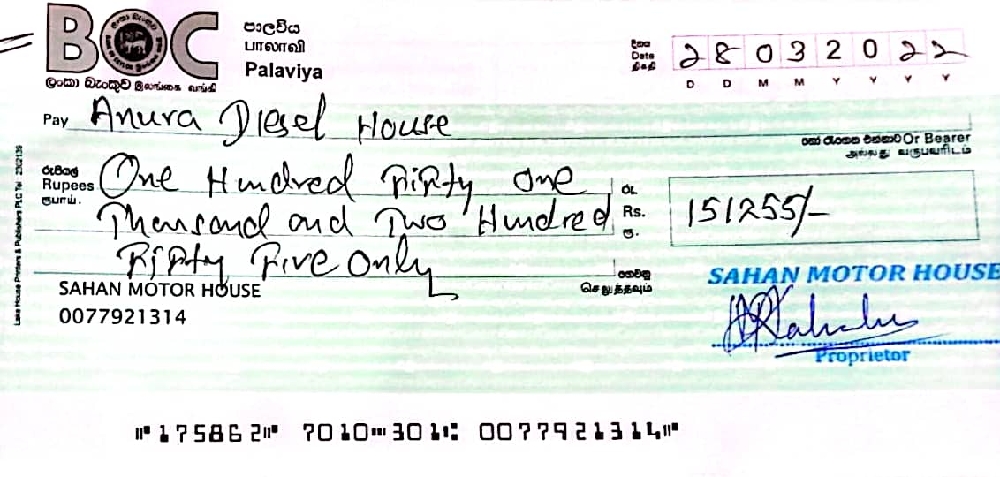 BOC
ලංකා බැංකුව இலங்கை வங்கி
පාලවිය
பாலாவி
Palaviya
දිනය
Date
திகதி
2 8 0 3 2 0 2 2
D D M M Y Y Y Y
Pay Anura Diesel House
හෝ රැගෙන එන්නාට Or Bearer
அல்லது வருபவரிடம்
රුපියල්
Rupees One Hundred Fifty One
ரூபாய்
Thousand and Two Hundred
Fifty Five Only
රු.
Rs. 151255/-
ரூ.
ගෙවනු
செலுத்தவும்
SAHAN MOTOR HOUSE
0077921314
SAHAN MOTOR HOUSE
Proprietor
Lake House Printers & Publishers PLC Tel
⑈175862⑈ 7010⑉301⑆ 0077921314⑈